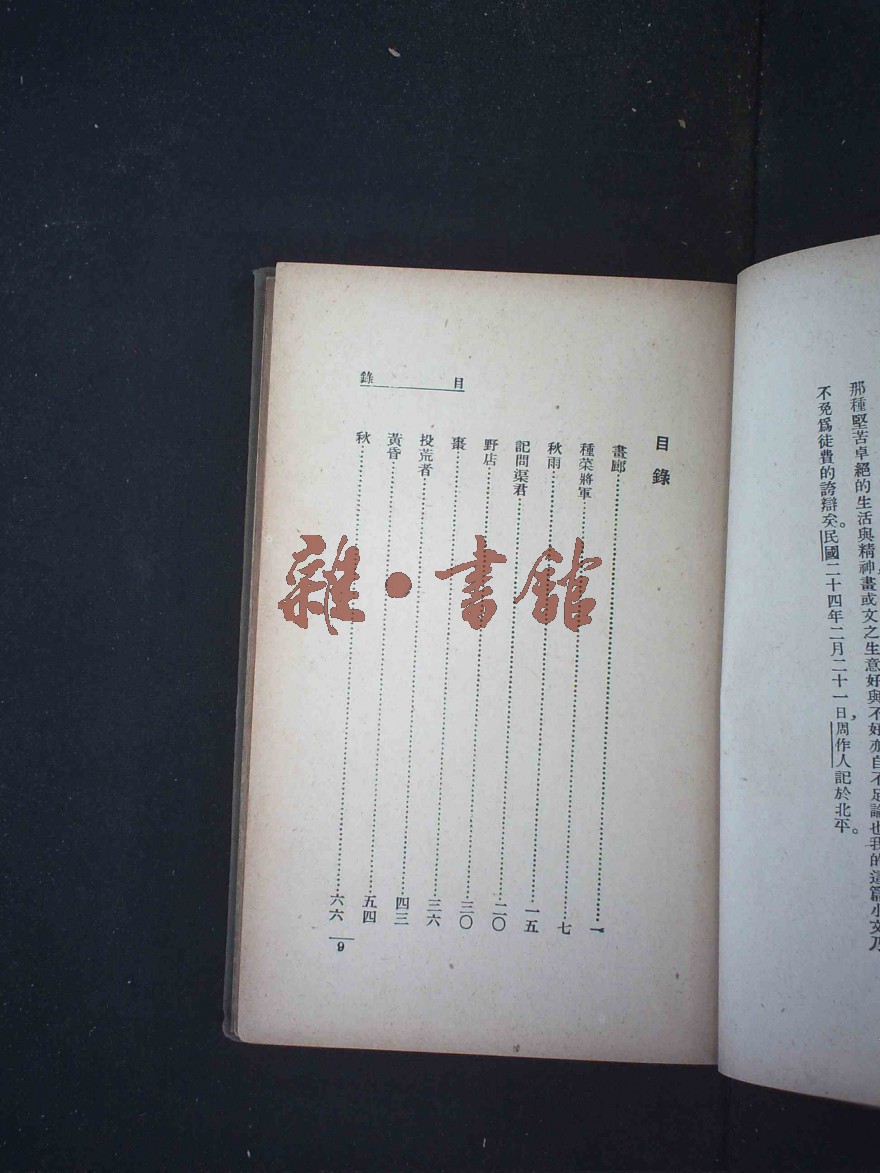 那種堅苦卓絕的生活與精神畫或文之生意好與不好亦自不足論也我的這篇小文乃
不免爲徒費的誇辯矣。民國二十四年二月二十一日，周作人記於北平。
目錄
目錄
畫廊……一
種菜將軍……七
秋雨……一五
記問渠君……二〇
野店……三〇
棗……三六
投荒者……四三
黃昏……五四
秋……六六
9
雜·書館